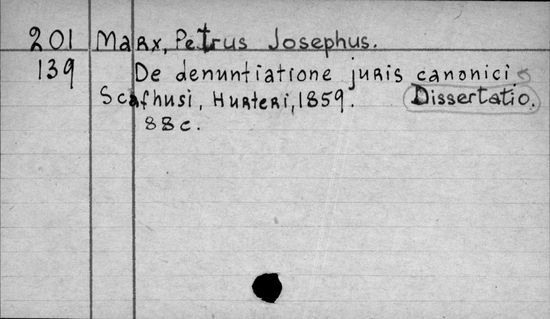 201 Marx, Petrus Josephus.
139 De denuntiatione juris canonici.
Scafhusi, Hurteri, 1859. Dissertatio.
88c.